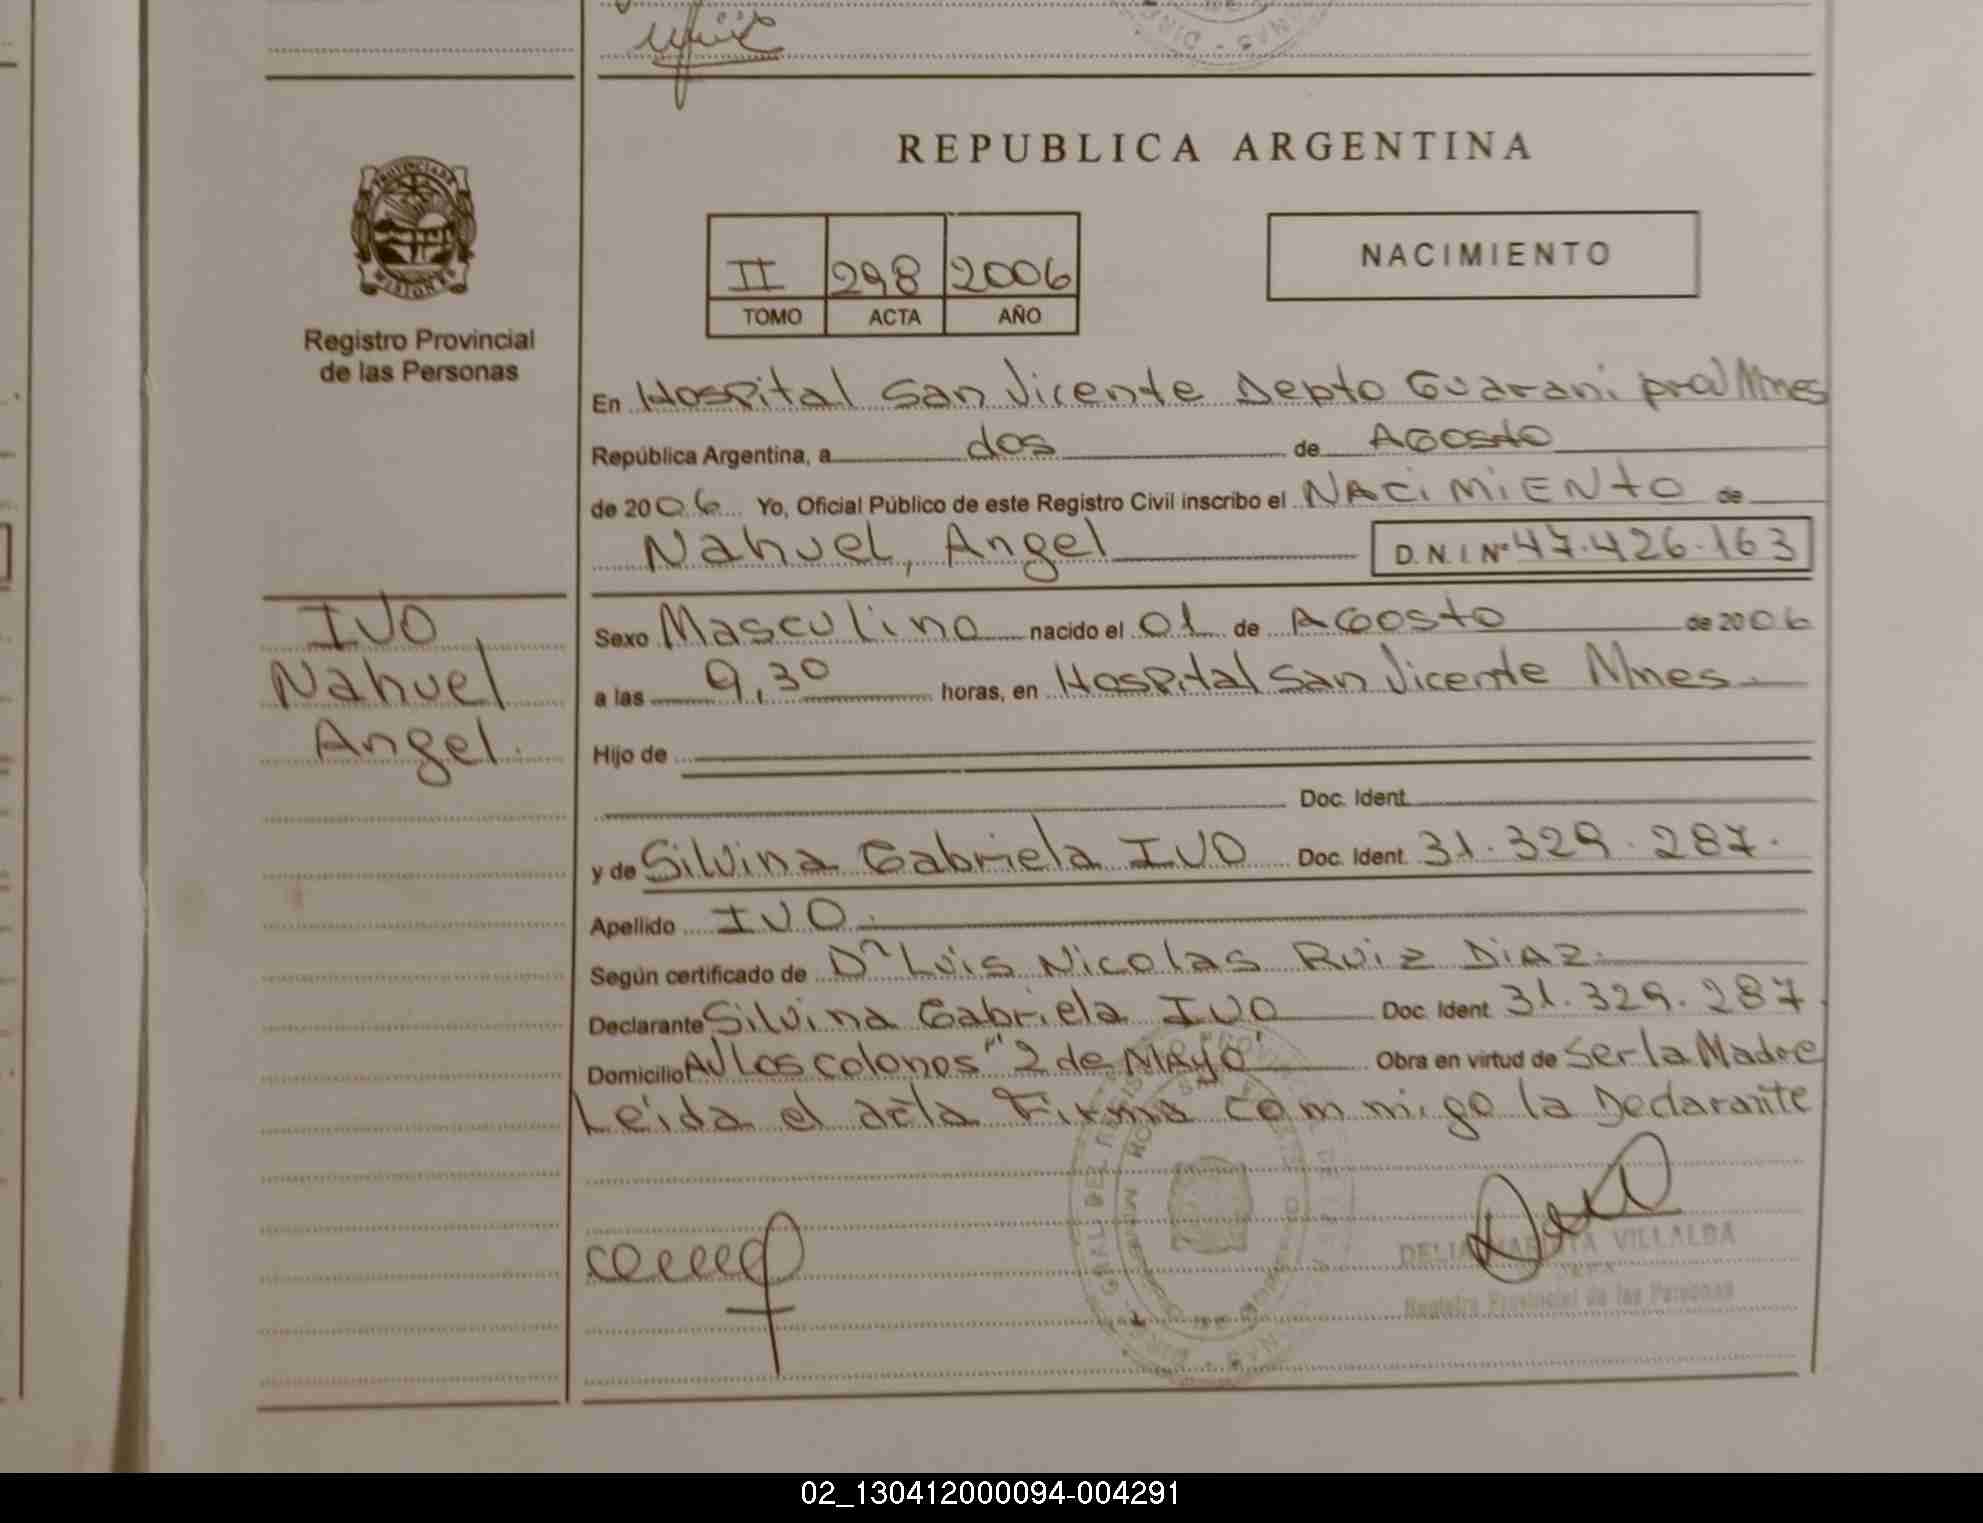 REPUBLICA ARGENTINA
PROVINCIA DE
MISIONES
Registro Provincial
de las Personas
II 298 2006
TOMO ACTA AÑO
NACIMIENTO
En Hospital San Vicente Depto Guarani pcia Mnes
República Argentina, a dos de Agosto
de 2006 Yo, Oficial Público de este Registro Civil inscribo el NACIMIENTO de
Nahuel, Angel D.N.I. Nº 47.426.163
IVO
Nahuel
Angel.
Sexo Masculino nacido el 01 de Agosto de 2006
a las 9,30 horas, en Hospital San Vicente Mnes.
Hijo de
Doc. Ident.
y de Silvina Gabriela IVO Doc. Ident. 31.329.287.
Apellido IVO.
Según certificado de Dr Luis Nicolas Ruiz Diaz.
Declarante Silvina Gabriela IVO Doc. Ident 31.329.287.
Domicilio AV Los colonos "2 de MAyo" Obra en virtud de ser la Madre
Leida el acta Firma com migo la Declarante
DELIA VILLALBA
JEFA
Registro Provincial de las Personas
02_130412000094-004291